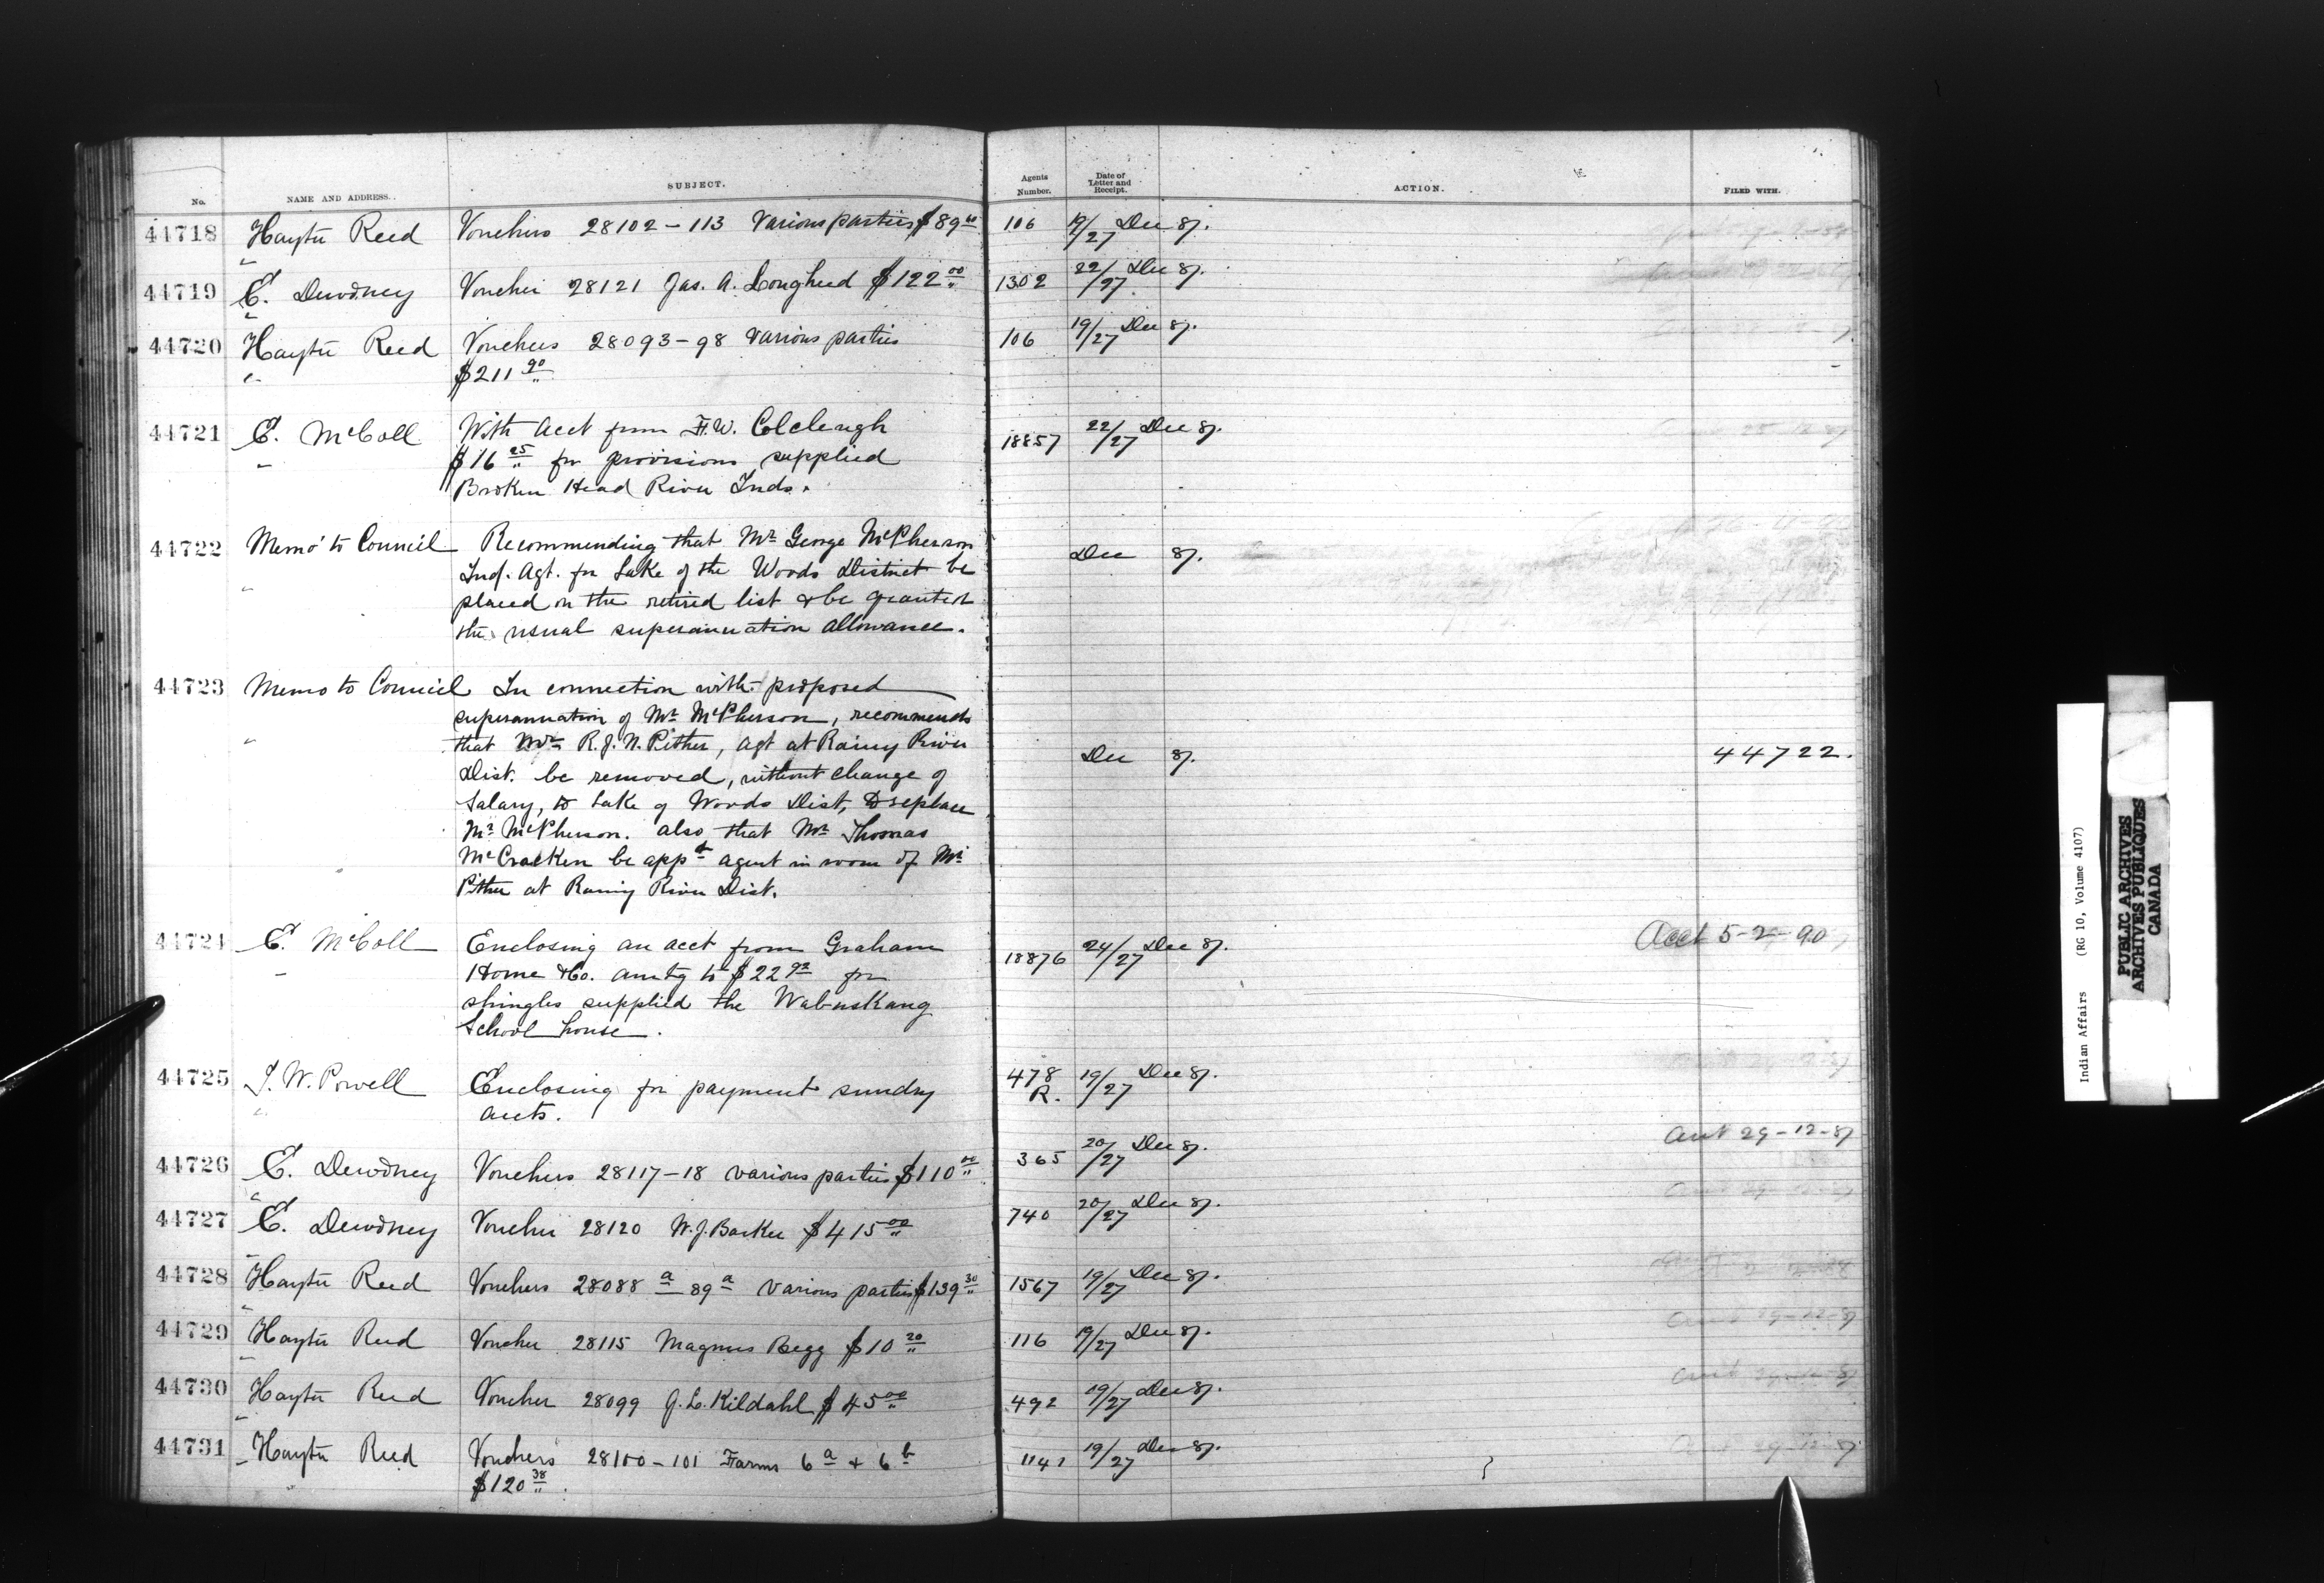 No. NAME AND ADDRESS. SUBJECT. Agents Number. Date of Letter and Receipt. ACTION. FILED WITH.
44718 Hayter Reed Vouchers 28102-113 Various parties 106 19/27 Dec 87.
44719 E. Dewdney Voucher 28121 Jas. A. Lougheed $122 00 1302 22/27 Dec 87.
44720 Hayter Reed Vouchers 28093-98 Various parties 106 19/27 Dec 87.
$211 90
44721 E. McColl With acct from F.W. Colcleugh 18857 22/27 Dec 87.
$16 25 for provisions supplied
Broken Head River Inds.
44722 Memo to Council Recommending that Mr George McPherson Dec 87.
Ind. Agt. for Lake of the Woods District be
placed on the retired list & be granted
the usual superannuation allowance.
44723 Memo to Council In connection with proposed
superannuation of Mr McPherson, recommends
that Mr R.J.N. Pither, agt at Rainy River Dec 87. 44722.
Dist. be removed, without change of
Salary, to Lake of Woods Dist, to replace
Mr McPherson. also that Mr Thomas
McCracken be appd agent in room of Mr
Pither at Rainy River Dist.
44724 E. McColl Enclosing an acct from Graham 18876 24/27 Dec 87. Acct 5-2-90
Horne & Co. amtg to $22 92 for
shingles supplied the Wabuskang
School house.
44725 I. W. Powell Enclosing for payment sundry 478 R. 19/27 Dec 87.
accts.
44726 E. Dewdney Vouchers 28117-18 various parties $110 00 365 20/27 Dec 87. acct 29-12-87
44727 E. Dewdney Voucher 28120 W.J. Barker $415 00 740 20/27 Dec 87.
44728 Hayter Reed Vouchers 28088 a 89 a Various parties $139 30 1567 19/27 Dec 87.
44729 Hayter Reed Voucher 28115 Magnus Begg $10 20 116 19/27 Dec 87.
44730 Hayter Reed Voucher 28099 G.L. Kildahl $45 00 492 19/27 Dec 87.
44731 Hayter Reed Vouchers 28100-101 Farms 6 a & 6 b 19/27 Dec 87.
$120 38
Indian Affairs (RG 10, Volume 4107)
PUBLIC ARCHIVES
ARCHIVES PUBLIQUES
CANADA